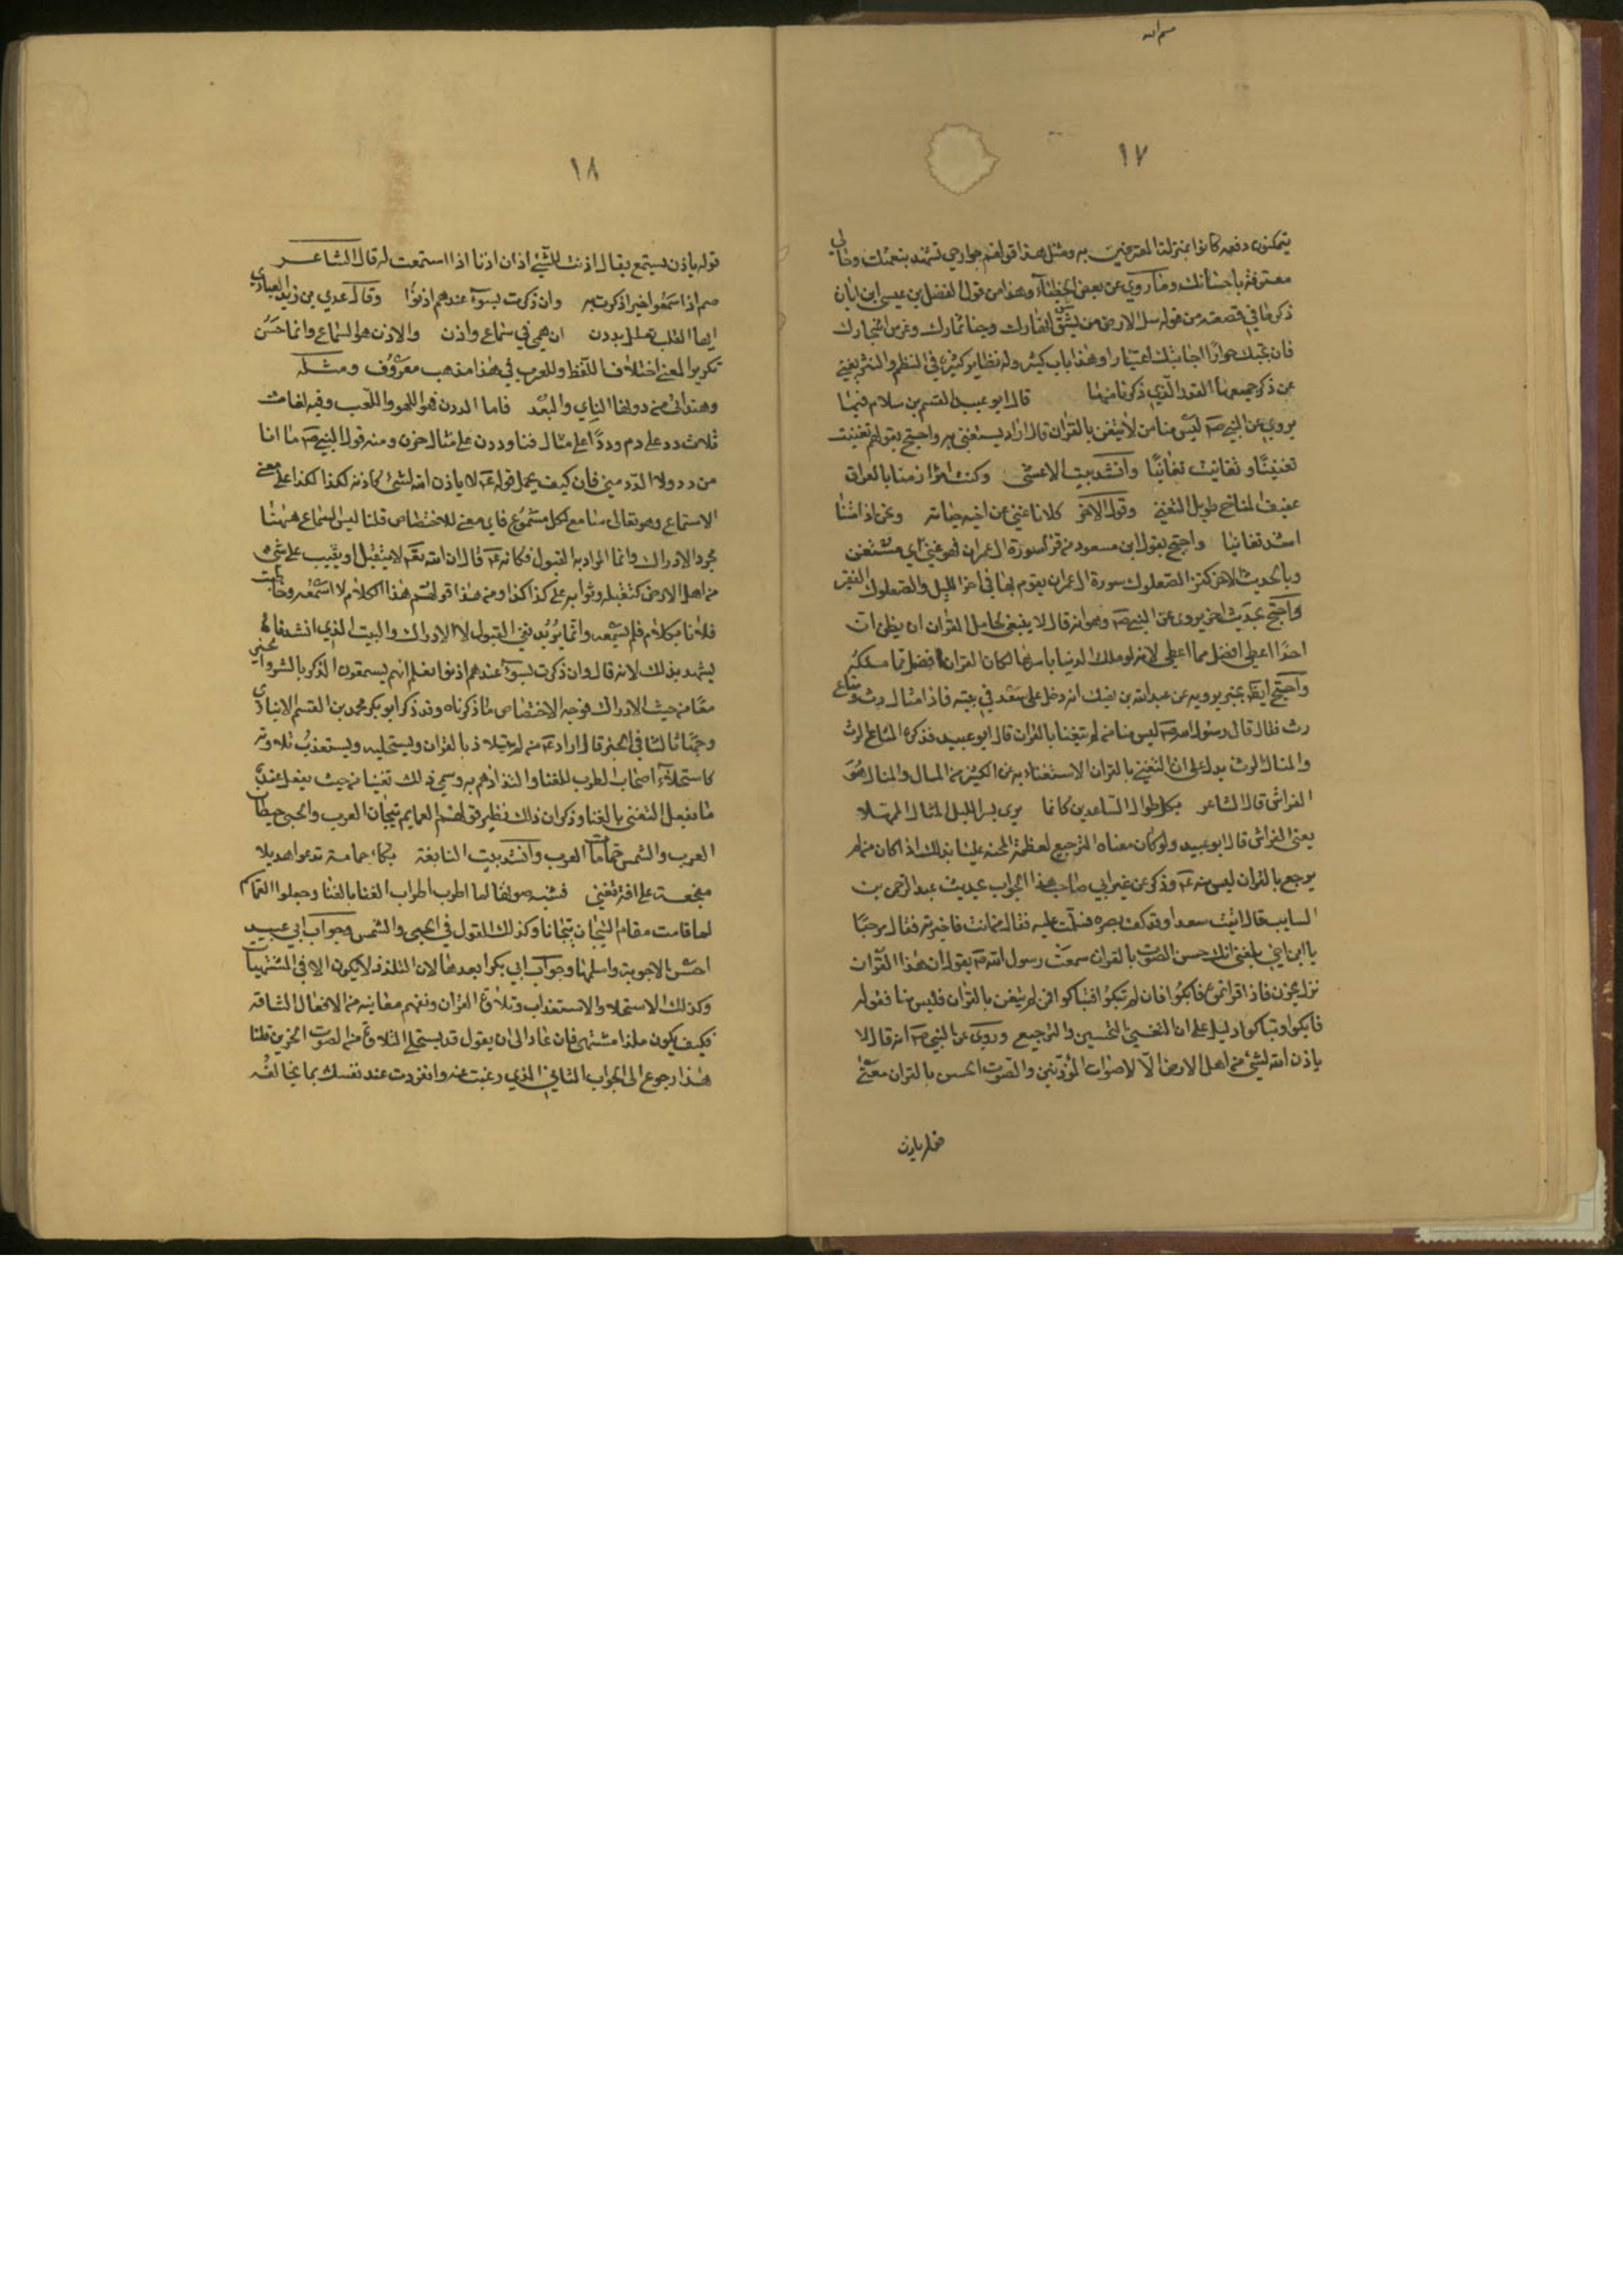 ١٧
يتمكنون دفعه كانوا بمنزلة المعترفين به ومثل هذا قولهم جوارحي تشهد بنعمتك وحالي
معترفة باحسانك وما روي عن بعض الخطباء وهذا من قول الفضل بن عيسى ابن ابان
ذكرها في قصصه من قوله سل الارض من شق انهارك وجنا ثمارك وغرس اشجارك
فان تجبك حوارا اجابتك اعتبارا وهذا باب كبير وله نظاير كثيرة في النظم والنثر يغني
عن ذكر جميعها القدر الذي ذكرنا منها قال ابو عبيد القسم بن سلام فيما
يروي عن النبي صم ليس منا من لا يتغن بالقران قال اراد يستغني به واحتج بقولهم تغنيت
تغنيّا وتغانيت تغانيًا وانشد بيت الاعشى وكنت امرأ زمنا بالعراق
عفيف المناخ طويل التغني وقول الاخر كلانا غني عن اخيه حياته ونحن اذا متنا
اشد تغانيا واحتج بقول ابن مسعود من قرا سورة ال عمران فهو غني اي مستغن
وبالحديث الاخر كنز الصعلوك سورة ال عمران يقوم بها في اخر الليل والصعلوك الفقير
واحتج بحديث اخر يروى عن النبي صم وهو انه قال لا ينبغي لحامل القران ان يظن ان
احدًا اعطي افضل مما اعطي لانه لو ملك الدنيا باسرها لكان القران افضل مما ملكه
واحتج ايضا بخبر يرويه عن عبدالله بن نهيك انه دخل على سعد في بيته فاذا مثال رث ومتاع
رث فقال قال رسول الله صم ليس منا من لم يتغنا بالقران قال ابو عبيد فذكره المتاع الرث
والمثال الرث يدل على ان التغني بالقران الاستغناء به عن الكثير من المال والمثال هو
الفراش قال الشاعر بكل طوال الساعدين كانما يرى بسرا الليل المثال الممهدا
يعني الفراش قال ابو عبيد ولو كان معناه الترجيع لعظمة المحنة علينا بذلك اذا كان من لم
يرجع بالقران ليس منه عم وذكر عن غير ابي صاحب هذا الجواب بحديث عبد الرحمن بن
السايب قال اتيت سعدا وقد كف بصره فسلمت عليه فقال من انت فاخبرته فقال مرحبًا
يا ابن اخي بلغني انك حسن الصوت بالقران سمعت رسول الله صم يقول ان هذا القران
نزل بحزن فاذا قراتموه فابكوا فان لم تبكوا فتباكوا فمن لم يتغن بالقران فليس منا فقوله
فابكوا وتباكوا دليل على ان التغني التحسين والترجيع وروي عن النبي صم انه قال لا
ياذن الله لشئ من اهل الارض الّا لاصوات المؤذنين والصوت الحسن بالقران معنى
قوله ياذن
١٨
قوله ياذن يستمع يقال اذنت للشئ اذن اذنا اذا استمعت له قال الشاعر
صم اذا سمعوا خيرا ذكرت به وان ذكرت بسوء عندهم اذنوا وقال عدي بن زيد العبادي
ايها القلب تعلل بددن ان همي في سماع واذن والاذن هو السماع وانما حسن
تكرير المعنى اختلاف اللفظ وللعرب في هذا مذهب معروف ومثله
وهند اتى من دونها الناي والبعد فاما الددن فهو اللهو واللعب وفيه لغات
ثلاث دد على دم وددًا على مثال فتا وددن على مثال حزن ومنه قول النبي صم ما انا
من دد ولا الدد مني فان كيف يحمل قوله عم لا ياذن الله لشئ كاذنه لكذا لكذا على معنى
الاستماع وهو تعالى سامع لكل مسموع فاي معنى للاختصاص قلنا ليس السماع ههنا
مجرد الادراك وانما المراد به القبول فكانه عم قال ان الله تعم لا يتقبل او يثيب على شئ
من اهل الارض كتقبله وثوابه على كذا كذا ومن هذا قولهم هذا الكلام لا اسمعه وخاطبت
فلانا بكلام فلم يسمعه وانما يريد نفي القبول لا الادراك والبيت الذي انشدناه
يشهد بذلك لانه قال وان ذكرت بسوء عندهم اذنوا نعلم انهم يسمعون الذكر بالسوء والخير
معًا من حيث الادراك فوجه الاختصاص ما ذكرناه وقد ذكر ابو بكر محمد بن القسم الانباري
وجهًا ثالثا في الخبر قال اراد عم من لم يتلاذ بالقران ويستحليه ويستعذب تلاوته
كاستحلاء اصحاب الطرب للغنا والتذاذهم به وسمي ذلك تغنيا من حيث يفعل عنده
ما يفعل التغني بالغنا وذكر ان ذلك نظير قولهم العمايم تيجان العرب والحبى حيطان
العرب والشمس حمامات العرب وانشد بيت النابغة بكاء حمامة تدعو هديلا
مفجعة على افنن تغني فشبه صوتها لما اطرب اطراب الغنا بالغنا وجعلوا العمايم
لما قامت مقام التيجان تيجانا وكذلك القول في الحبى والشمس وجواب ابي عبيد
احسن الاجوبة واسلمها وجواب ابي بكر ابعدها لان التلذذ لا يكون الا في المشتهيات
وكذلك الاستحلا والاستعذاب وتلاوة القران وتفهم معانيه من الافعال الشاقة
فكيف يكون ملذا مشتهى فان عاد الى ان يقول قد يستحلى التلاوة من الصوت الحزين قلنا
هذا رجوع الى الجواب الثاني الذي رغبت عنه وانفردت عند نفسك بما يخالفه